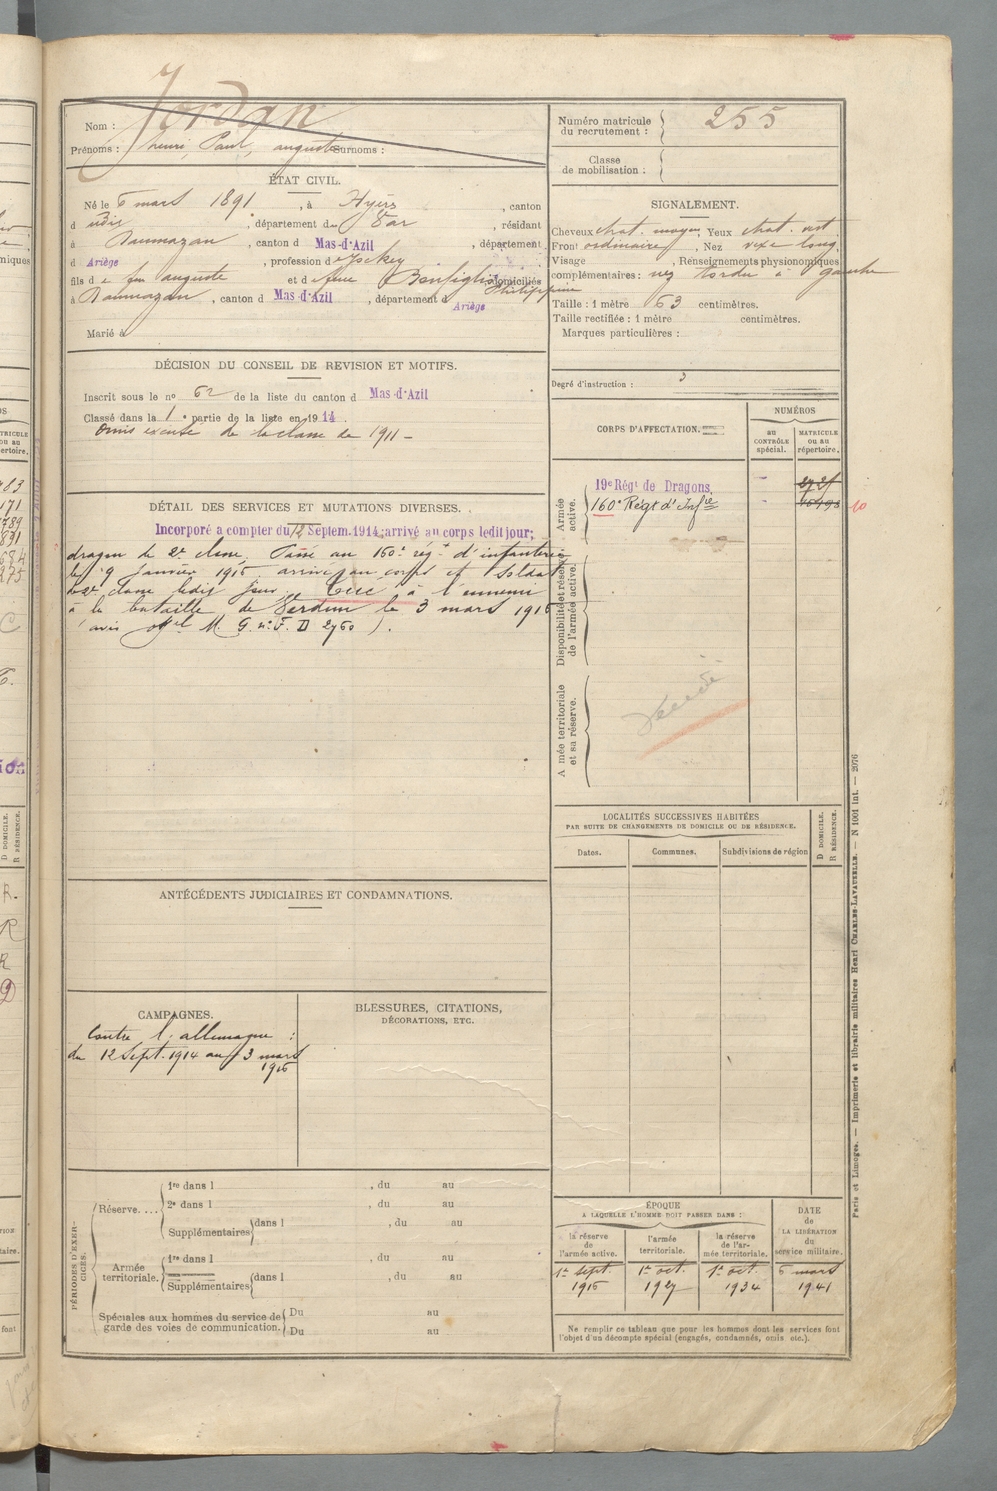 Jordan
Nom :
Prénoms : henri, Paul, auguste Surnoms :
Numéro matricule du recrutement : 255
Classe de mobilisation :
ÉTAT CIVIL.
Né le 6 mars 1891, à Hyères, canton
d udit, département du Var, résidant
à Daumazan, canton d Mas-d'Azil, département
d Ariège, profession de Jockey
fils de feu auguste et de feue Bonfiglio Philippine domiciliés
à Daumazan, canton d Mas-d'Azil, département d Ariège
Marié à
SIGNALEMENT.
Cheveux chat. moyen, Yeux chat. vert
Front ordinaire, Nez vexe long
Visage , Renseignements physionomiques
complémentaires : nez tordu à gauche
Taille : 1 mètre 63 centimètres.
Taille rectifiée : 1 mètre centimètres.
Marques particulières :
Degré d'instruction : 3
DÉCISION DU CONSEIL DE REVISION ET MOTIFS.
Inscrit sous le no 62 de la liste du canton d Mas-d'Azil
Classé dans la 1e partie de la liste en 1914.
Omis excusé de la classe de 1911 -
DÉTAIL DES SERVICES ET MUTATIONS DIVERSES.
Incorporé a compter du 12 Septem. 1914; arrivé au corps ledit jour;
dragon de 2e classe, Passé au 160e rég. d'infanterie
le 9 Janvier 1916 arrivé au corps et soldat
de 2e classe ledit jour. Tué à l'ennemi
à la bataille de Verdun le 3 mars 1916
(avis off.el M. G. no F. D 2760).
CORPS D'AFFECTATION.
NUMÉROS
au CONTRÔLE spécial.
MATRICULE ou au répertoire.
Armée active.
19e Régt de Dragons
160e Régt d'Infie
10
Disponibilité et réserve de l'armée active.
Armée territoriale et sa réserve.
LOCALITÉS SUCCESSIVES HABITÉES
PAR SUITE DE CHANGEMENTS DE DOMICILE OU DE RÉSIDENCE.
Dates.
Communes.
Subdivisions de région
D DOMICILE.
R RÉSIDENCE.
ANTÉCÉDENTS JUDICIAIRES ET CONDAMNATIONS.
CAMPAGNES.
Contre l'allemagne :
du 12 Sept. 1914 au 3 mars
1916
BLESSURES, CITATIONS,
DÉCORATIONS, ETC.
PÉRIODES D'EXERCICES.
Réserve....
1re dans l , du au
2e dans l , du au
Supplémentaires dans l , du au
Armée territoriale.
1re dans l , du au
Supplémentaires dans l , du au
Spéciales aux hommes du service de garde des voies de communication.
Du au
Du au
ÉPOQUE
A LAQUELLE L'HOMME DOIT PASSER DANS :
la réserve de l'armée active.
l'armée territoriale.
la réserve de l'armée territoriale.
DATE de LA LIBÉRATION du service militaire.
1er sept. 1916
1er oct. 1927
1er oct. 1934
6 mars 1941
Ne remplir ce tableau que pour les hommes dont les services font
l'objet d'un décompte spécial (engagés, condamnés, omis etc.).
Paris et Limoges. — Imprimerie et librairie militaires Henri CHARLES-LAVAUZELLE. — N 1001 int. — 2076